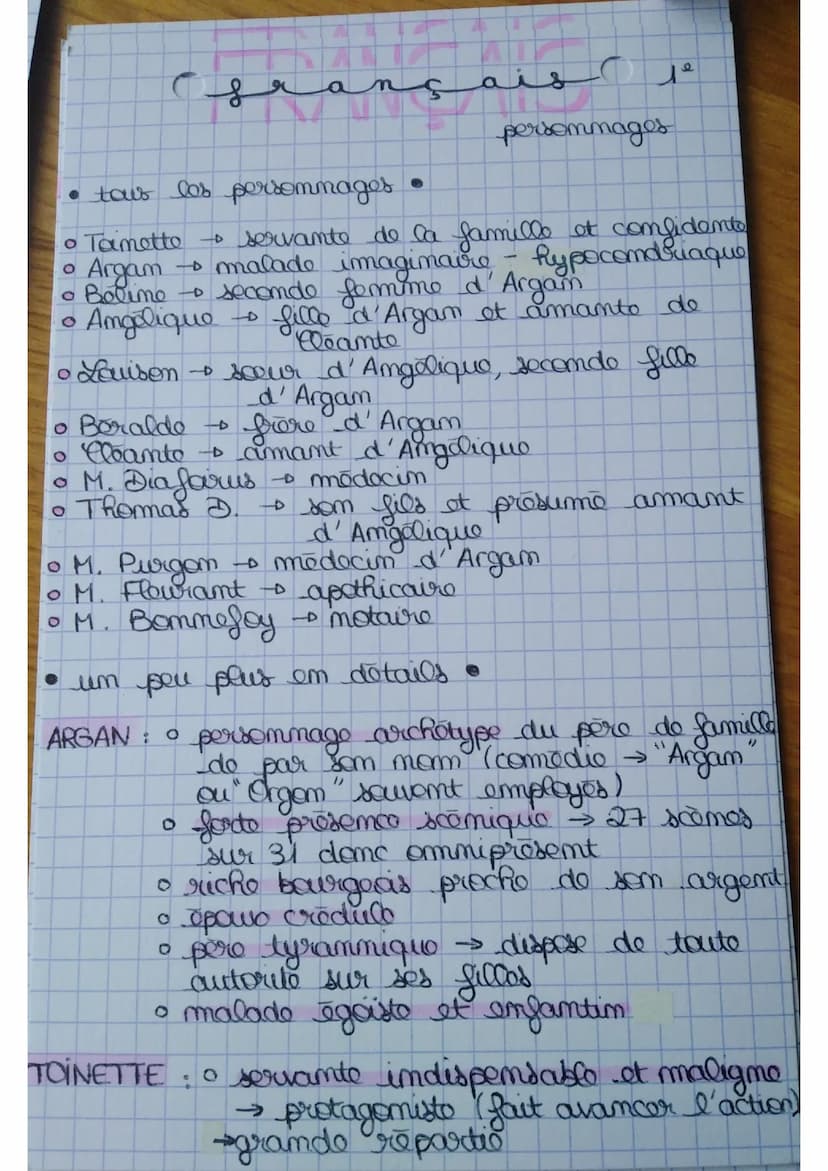 FRANÇAIS
français 1e
personnages
• tous les personnages •
o Toinette → servante de la famille et confidente
o Argan → malade imaginaire - hypocondriaque
o Béline → seconde femme d'Argan
o Angélique → fille d'Argan et amante de
Cléante
o Louison → soeur d'Angélique, seconde fille
d'Argan
o Beralde → frère d'Argan
o Cléante → amant d'Angélique
o M. Diafoirus → médecin
o Thomas D. → son fils et présumé amant
d'Angélique
o M. Purgon → médecin d'Argan
o M. Fleurant → apothicaire
o M. Bonnefoy → notaire
• un peu plus en détails •
ARGAN : o personnage archétype du père de famille
de par son nom (comédie → "Argan"
ou "Orgon" souvent employés)
o forte présence scénique → 27 scènes
sur 31 donc omniprésent
o riche bourgeois proche de son argent
o époux crédule
o père tyrannique → dispose de toute
autorité sur ses filles
o malade égoïste et enfantin
TOINETTE : o servante indispensable et maligne
→ protagoniste (fait avancer l'action)
→ grande répartie